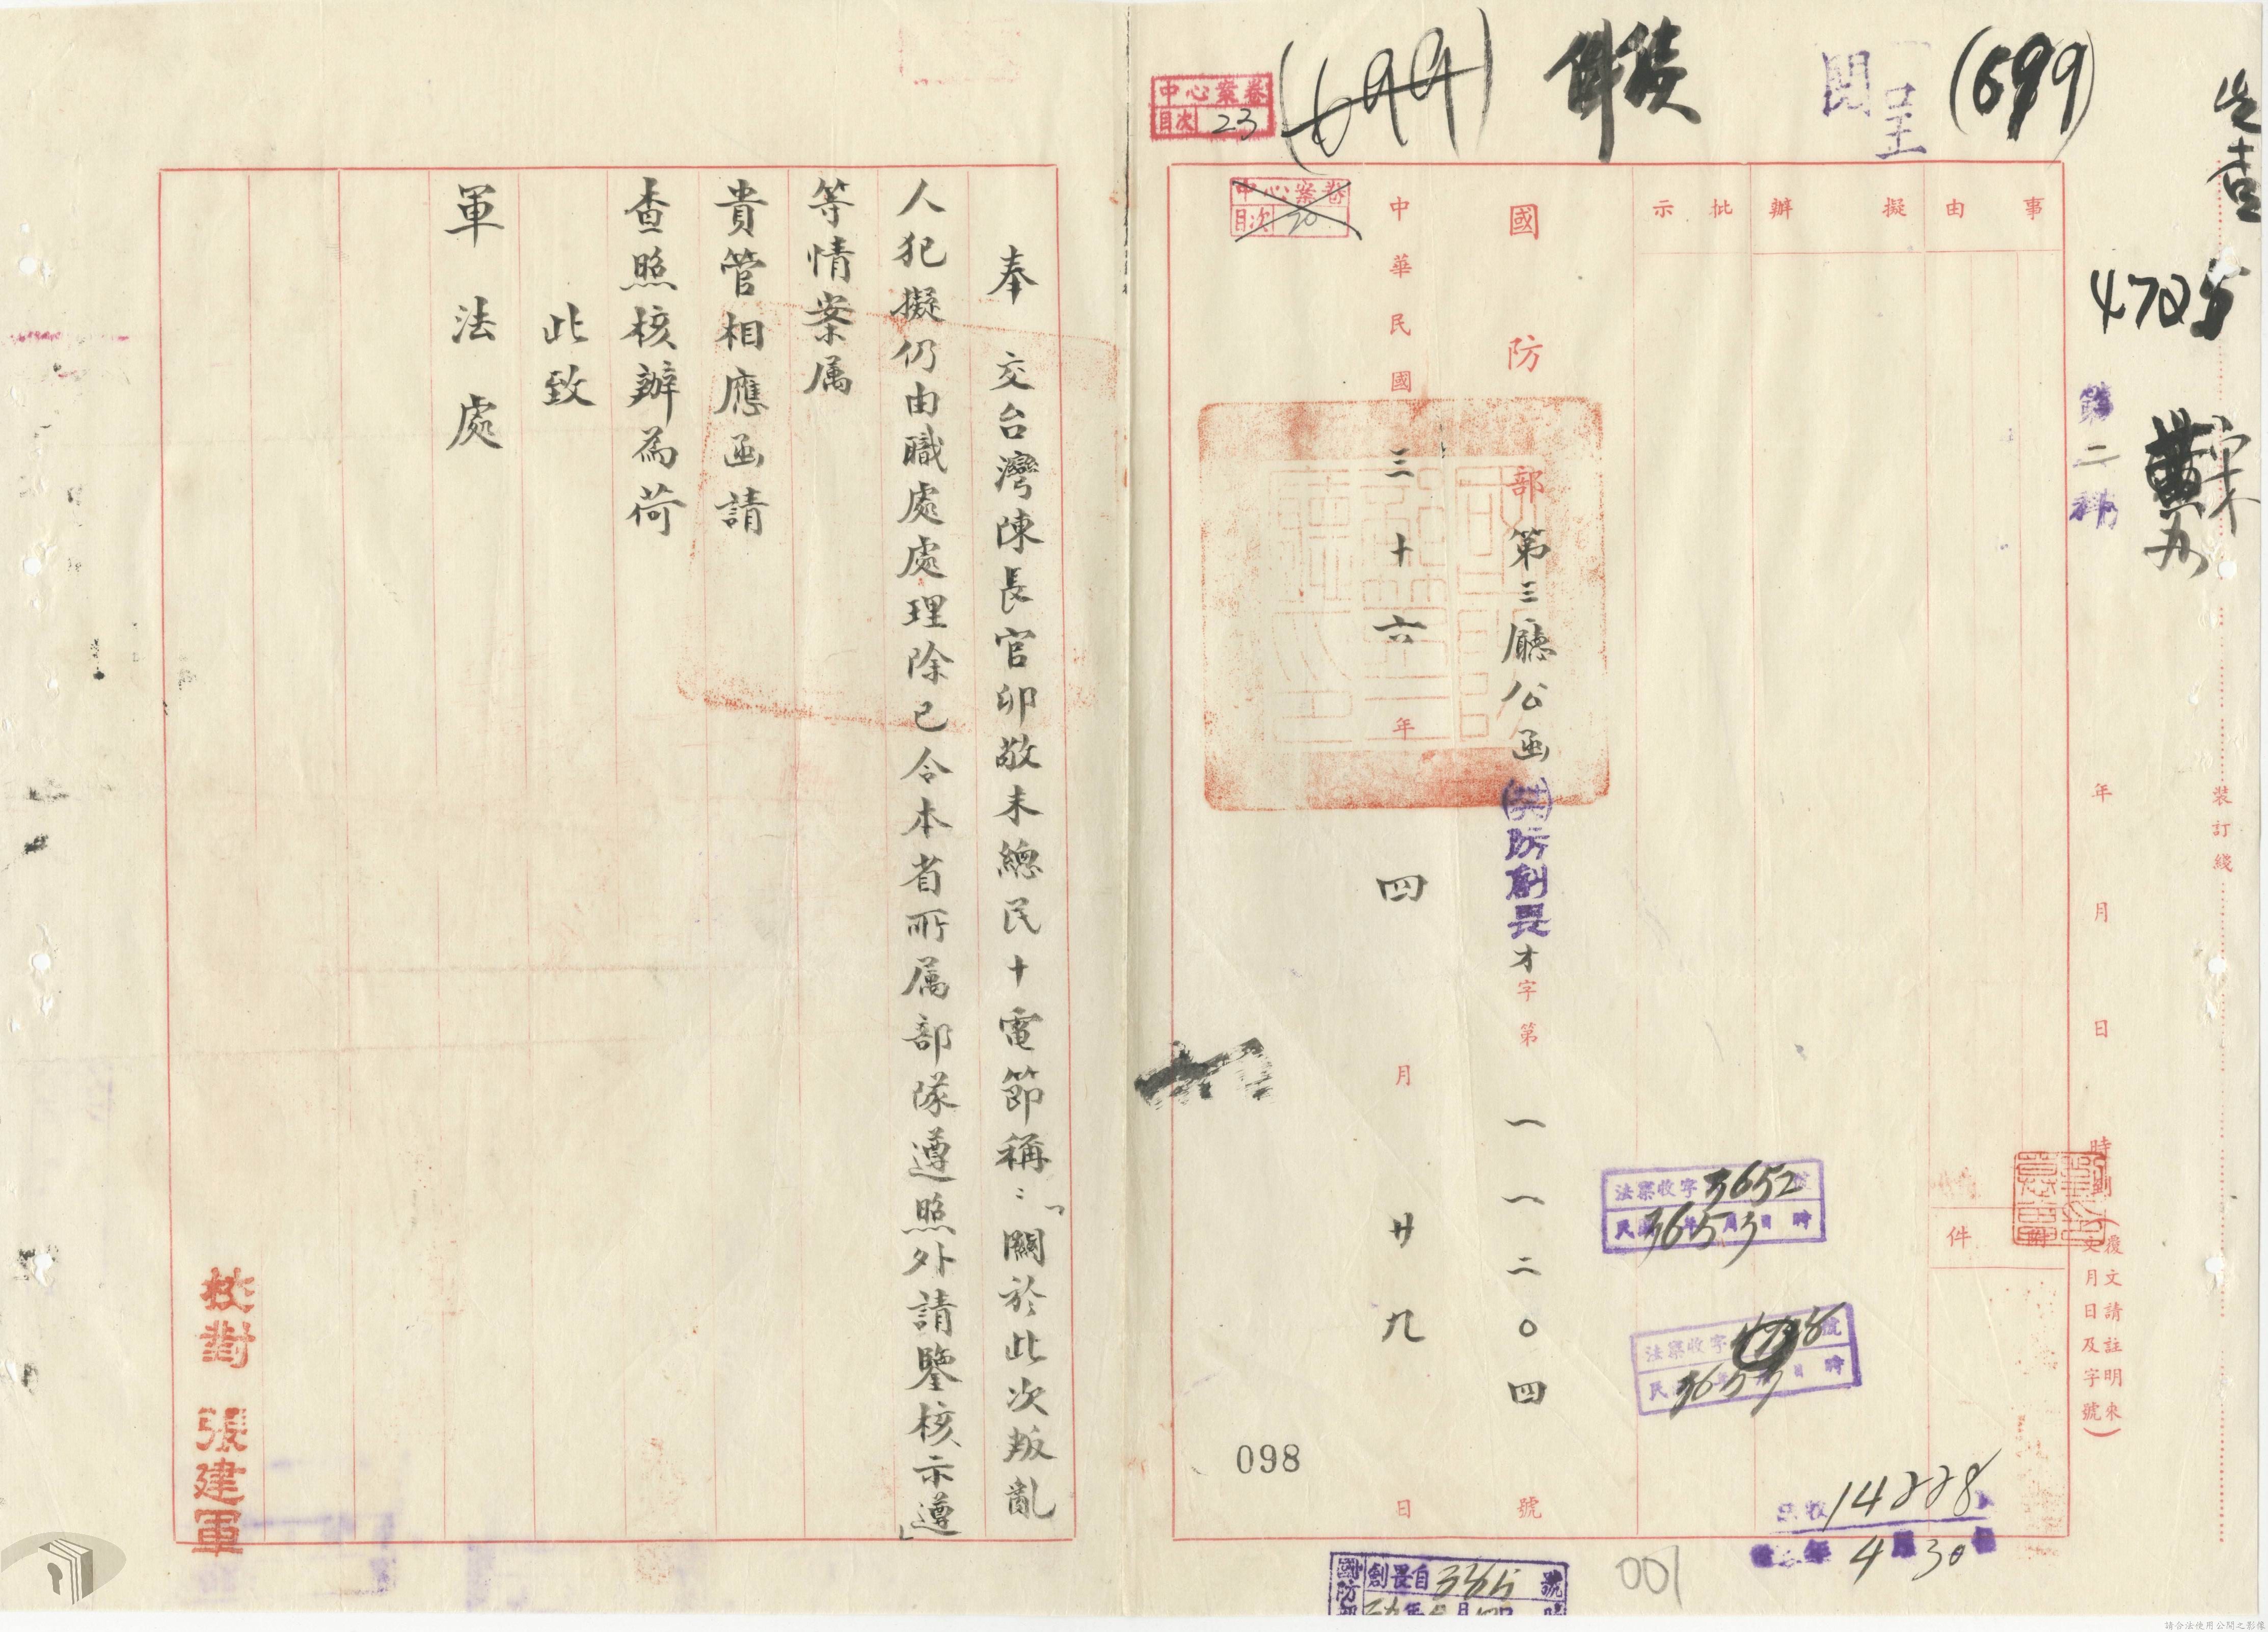 (699)
閱
呈
(699)
中心案卷
目次 23
4705
第二科
裝訂綫
年 月 日 時
(覆文請註明來文月日及字號)
事由
擬辦
批示
件
法察收字3652號
民
法察收字
號
時
收14228
年4月30
國防部第三廳公函
防創畏才字第一一二〇四號
中華民國三十六年四月廿九日
中心案卷
目次 20
098
001
國防部
創畏自
號
奉 交台灣陳長官卯敬未總民十電節稱：「關於此次叛亂
人犯擬仍由職處處理除已令本省所属部隊遵照外請鑒核示遵」
等情案属
貴管相應函請
查照核辦為荷
此致
軍法處
校對 張建軍
請合法使用公開之影像